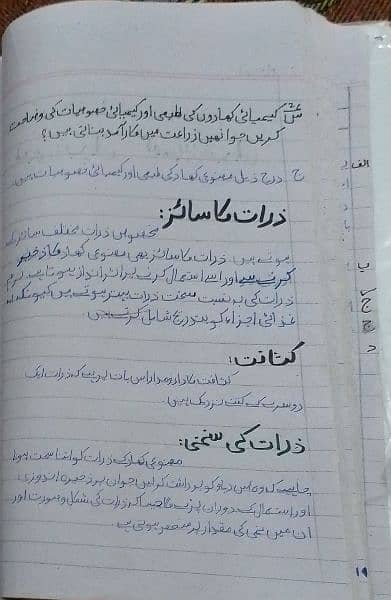 س کیمیائی کھادوں کی طبیعی اور کیمیائی خصوصیات کی وضاحت
کریں جو انھیں زراعت میں کارآمد بناتی ہیں؟
ج درج ذیل مصنوعی کھاد کی طبیعی اور کیمیائی خصوصیات ہیں۔
ذرات کا سائز:
مخصوص ذرات مختلف سائز کے
ہوتے ہیں۔ ذرات کا سائز بھی مصنوعی کھاد کا ذخیرہ
کرنے سے اور اسے استعمال کرنے پر اثر انداز ہوتا ہے۔ نرم
ذرات کی بہ نسبت سخت ذرات بہتر ہوتے ہیں کیونکہ وہ
غذائی اجزاء کو بتدریج شامل کرتے ہیں۔
کثافت:
کثافت کا دارومدار اس بات پر ہے کہ ذرات ایک
دوسرے کے کتنے نزدیک ہیں۔
ذرات کی سختی:
مصنوعی کھاد کے ذرات کو اتنا سخت ہونا
چاہیے کہ وہ اس دباؤ کو برداشت کر لیں جو ان پر ذخیرہ اندوزی
اور استعمال کے دوران پڑے ذرات کی شکل و صورت اور
ان میں نمی کی مقدار پر منحصر ہوتی ہے
الف
ب
ج
د
۱۹